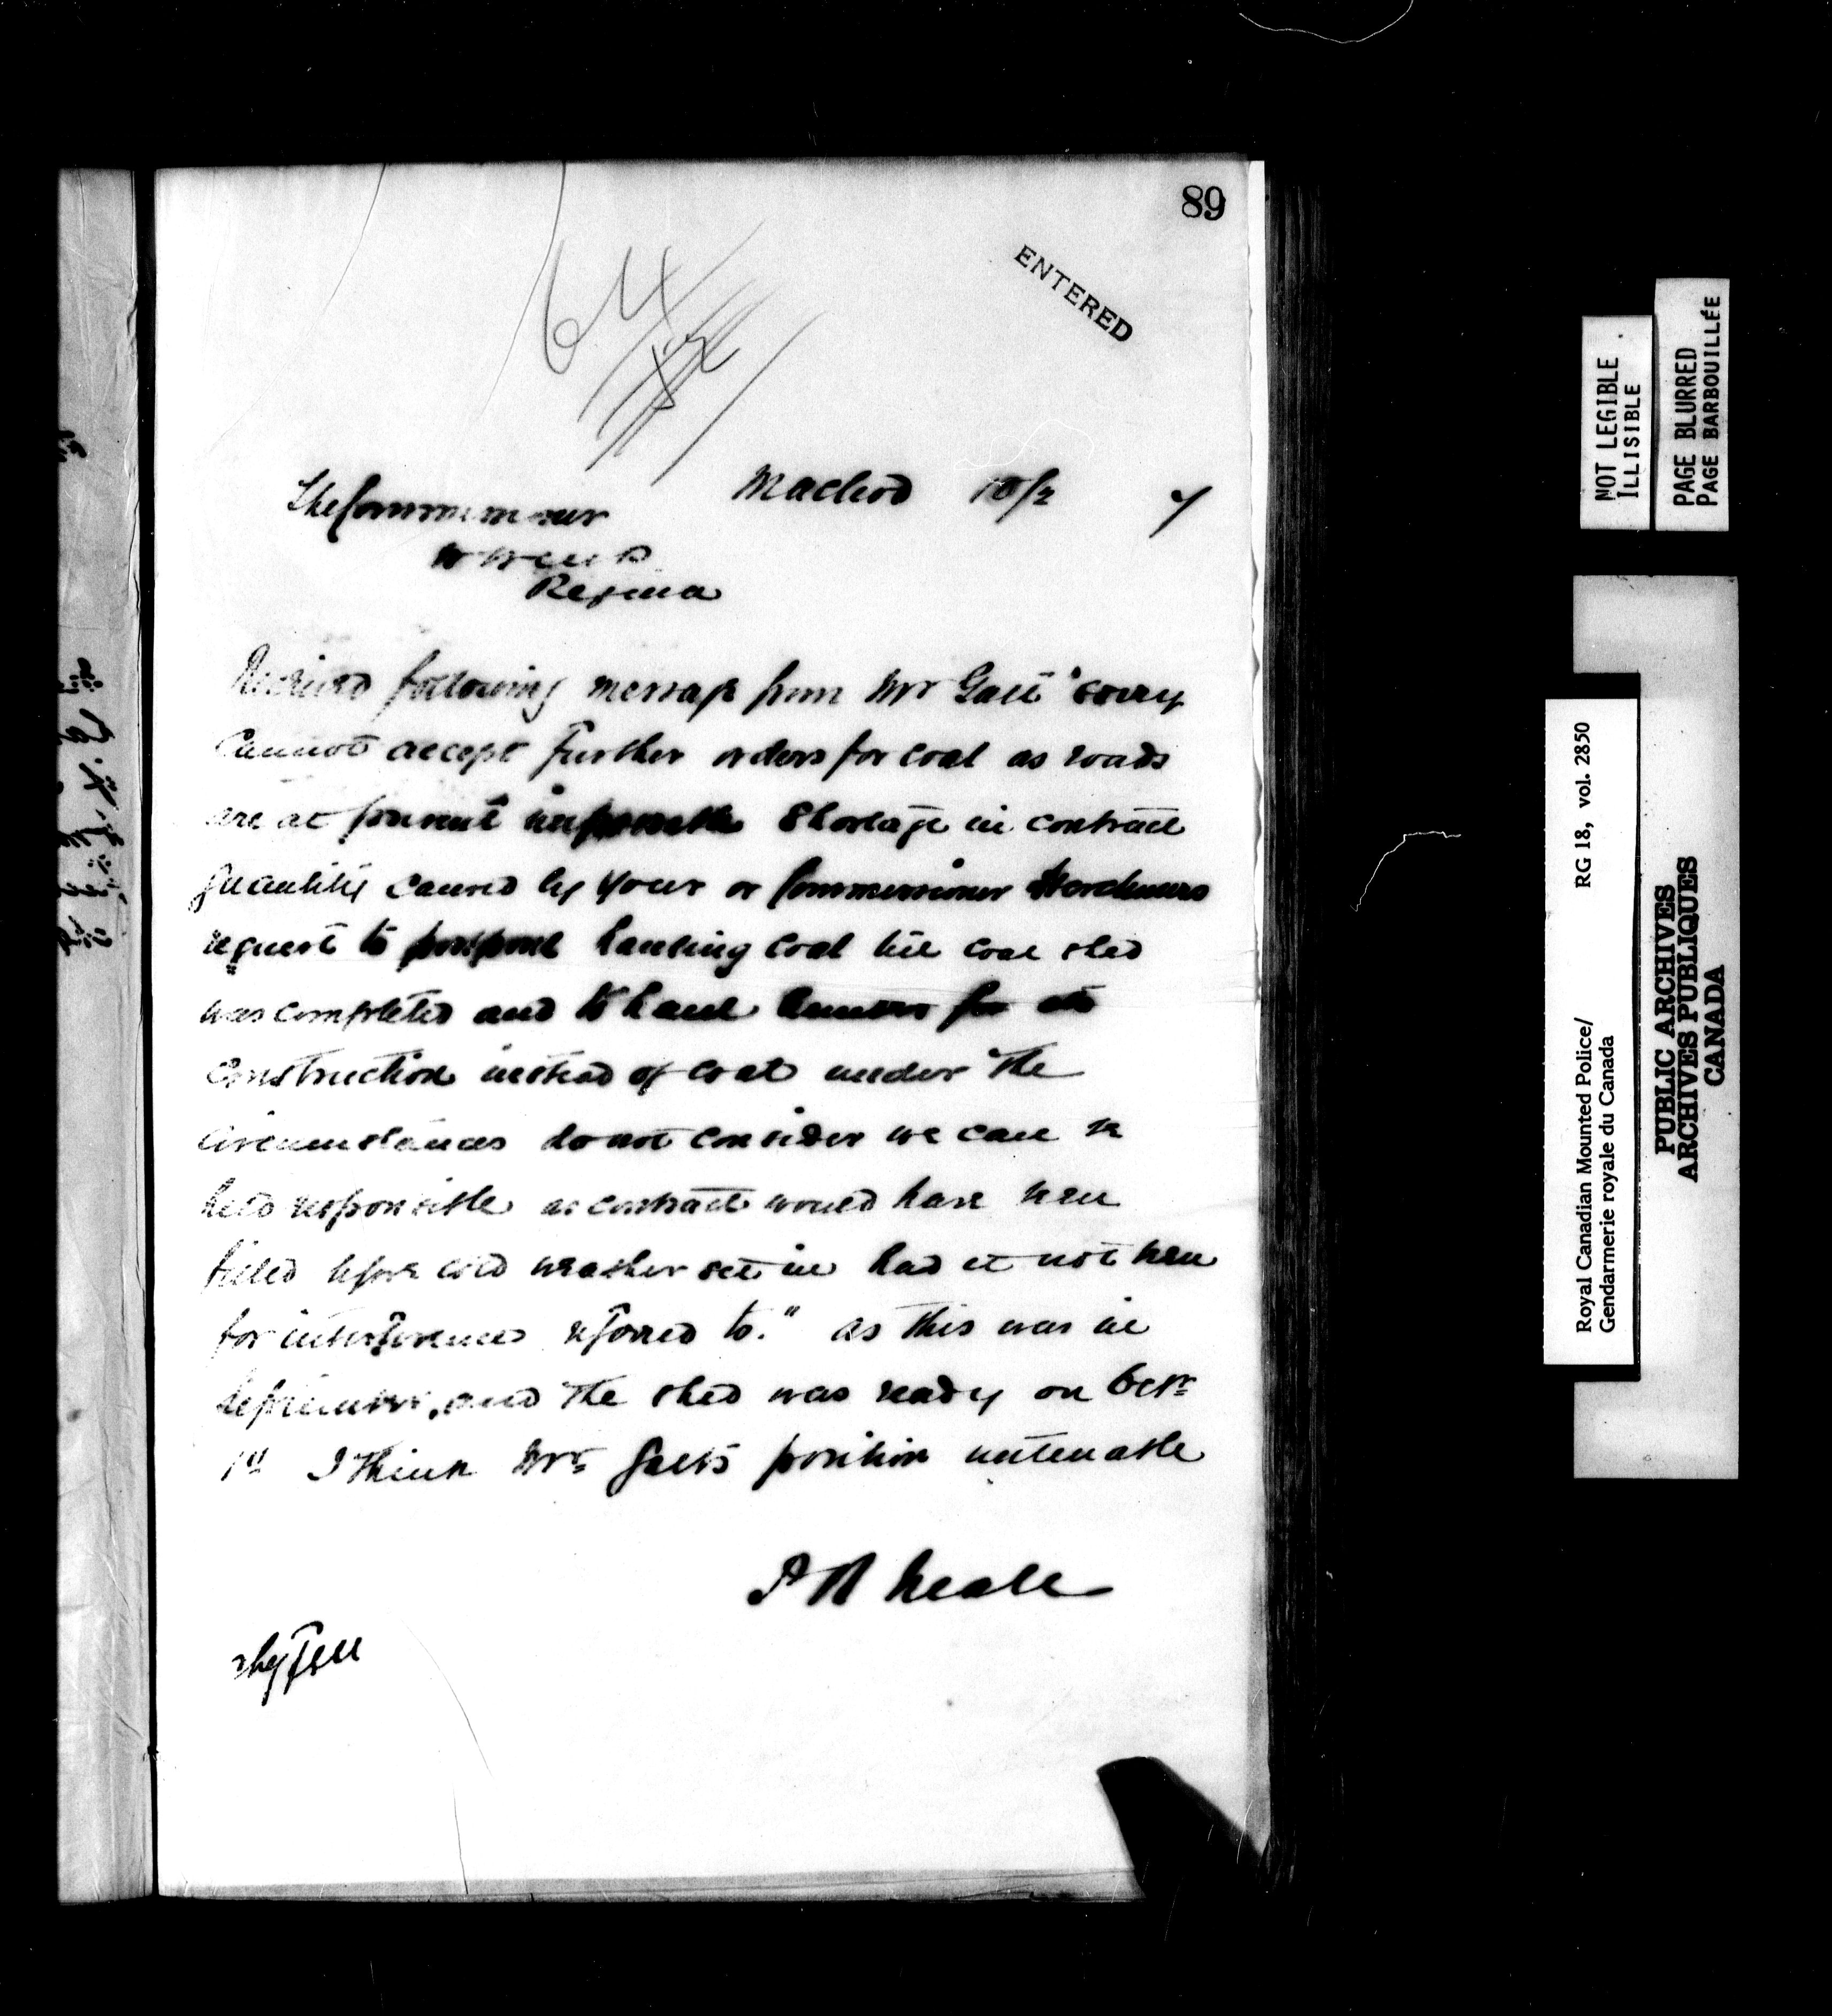 89
ENTERED
64
Macleod 10/2 7
The Commissioner
N W M P
Regina
Received following message from Mr Galt "sorry
cannot accept further orders for coal as roads
are at present impassable Shortage in contract
quantity caused by your or Commissioner Herchmers
request to postpone hauling coal till coal shed
was completed and to haul lumber for its
construction instead of coal under the
circumstances do not consider we can be
held responsible as contract would have been
filled before cold weather set in had it not been
for interference referred to." as this was in
September, and the shed was ready on Octr
1st I think Mr Galt's position untenable
P R Neale
NOT LEGIBLE
ILLISIBLE
PAGE BLURRED
PAGE BARBOUILLÉE
Royal Canadian Mounted Police/ RG 18, vol. 2850
Gendarmerie royale du Canada
PUBLIC ARCHIVES
ARCHIVES PUBLIQUES
CANADA